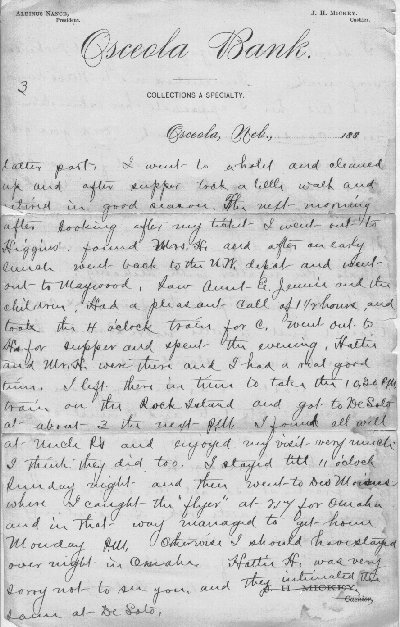 ALBINUS NANCE, President.
J. H. MICKEY, Cashier.
Osceola Bank.
3
COLLECTIONS A SPECIALTY.
Osceola, Neb., 188
latter part. I went to a hotel and cleaned
up and after supper took a little walk and
retired in good season. The next morning
after looking after my ticket I went out to
Higgins found Mrs. H. and after an early
lunch went back to the N.W. depot and went
out to Maywood, Saw Aunt E. Jennie and the
children, Had a pleasant call of 1½ hours, and
took the 4 o'clock train for C. Went out to
H's for supper and spent the evening, Hattie
and Mr. H. were there and I had a real good
time. I left there in time to take the P.M.
train on the Rock Island and got to De Soto
at about 2 the next P.M. I found all well
at Uncle P's and enjoyed my visit very much
I think they did too. I stayed till 11 o'clock
Sunday night and then went to Des Moines
where I caught the "flyer" at for Omaha
and in that way managed to get home
Monday P.M. Otherwise I should have stayed
over night in Omaha. Hattie H. was very
sorry not to see you, and they intimated the
J. H. MICKEY,
Cashier,
same at De Soto.